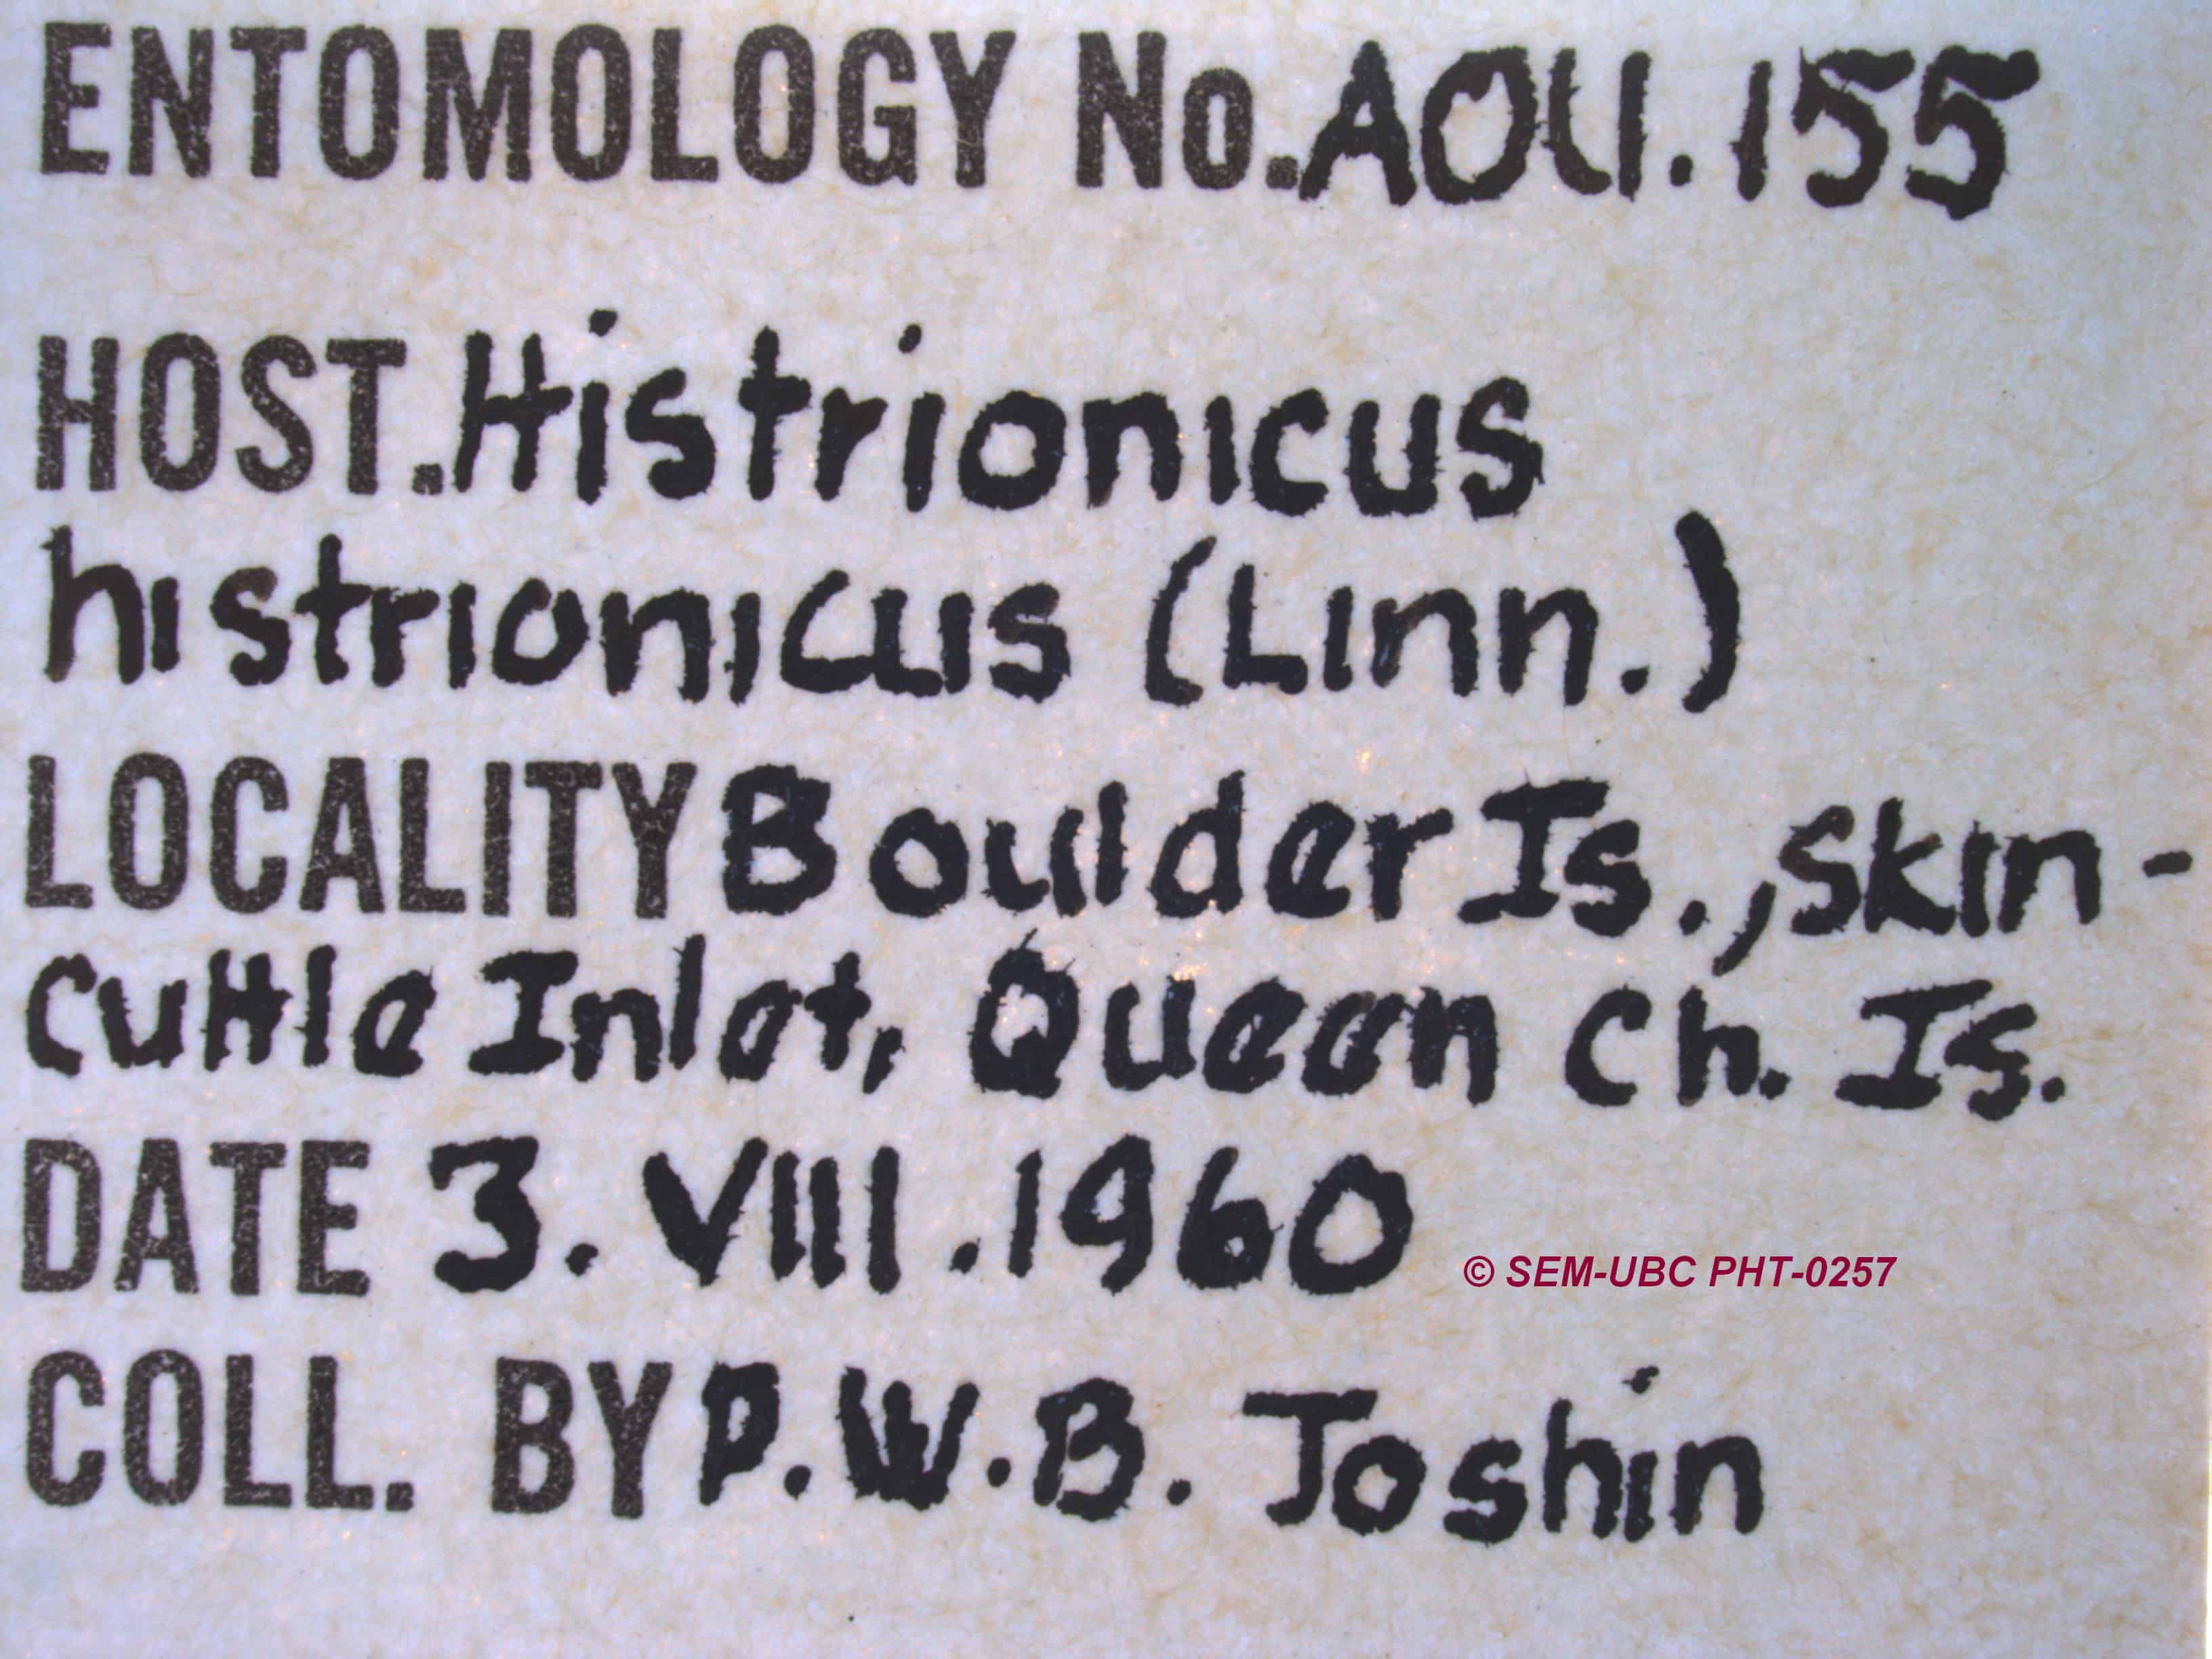 ENTOMOLOGY No. AOU. 155
HOST. Histrionicus
histrionicus (Linn.)
LOCALITY Boulder Is., Skin-
cuttle Inlet, Queen Ch. Is.
DATE 3. VIII. 1960
© SEM-UBC PHT-0257
COLL. BY P. W. B. Joshin